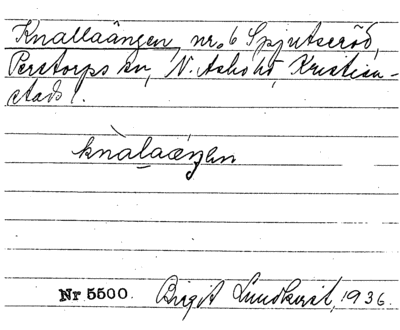 Knallaängen, nr. 6 Spjutseröd,
Perstorps sn, N. Åsbo hd, Kristian-
stads l.
knàlaæŋen
Nr 5500. Birgit Lundkvist, 1936.